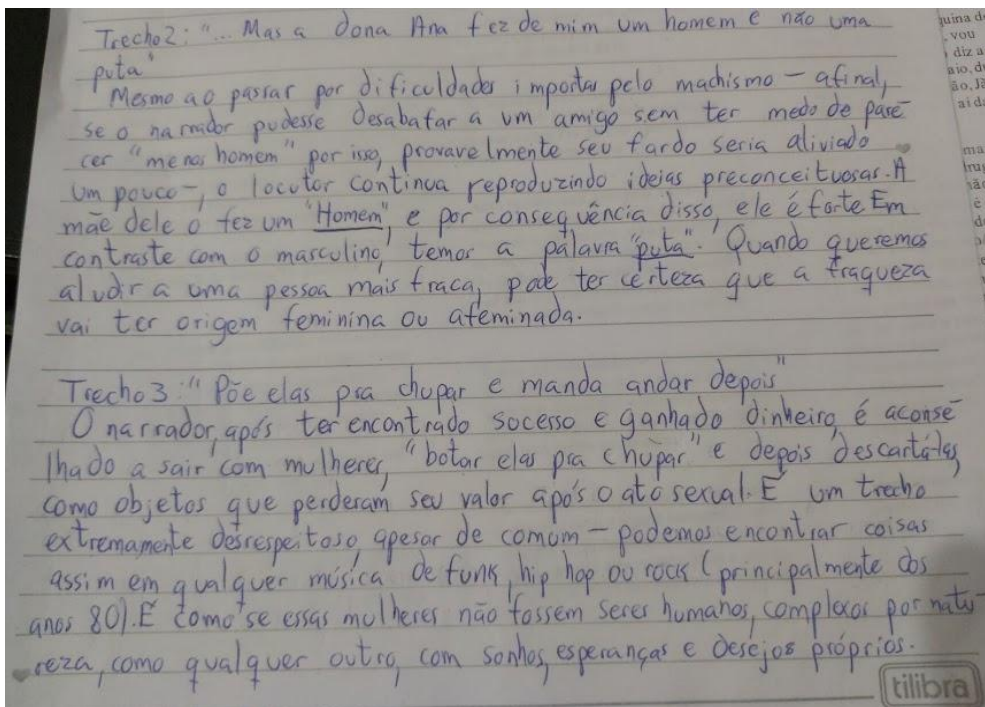 Trecho 2: "... Mas a dona Ana fez de mim um homem e não uma
puta"
Mesmo ao passar por dificuldades importas pelo machismo – afinal,
se o narrador pudesse desabafar a um amigo sem ter medo de pare-
cer "menos homem" por isso, provavelmente seu fardo seria aliviado
um pouco –, o locutor continua reproduzindo ideias preconceituosas. A
mãe dele o fez um "Homem", e por consequência disso, ele é forte. Em
contraste com o masculino, temos a palavra "puta". Quando queremos
aludir a uma pessoa mais fraca, pode ter certeza que a fraqueza
vai ter origem feminina ou afeminada.
Trecho 3: "Põe elas pra chupar e manda andar depois"
O narrador, após ter encontrado sucesso e ganhado dinheiro, é aconse-
lhado a sair com mulheres, "botar elas pra chupar" e depois descartá-las,
como objetos que perderam seu valor após o ato sexual. É um trecho
extremamente desrespeitoso, apesar de comum – podemos encontrar coisas
assim em qualquer música de funk, hip hop ou rock (principalmente dos
anos 80). É como se essas mulheres não fossem seres humanos, complexos por natu-
reza, como qualquer outro, com sonhos, esperanças e desejos próprios.
tilibra
quina d
, vou
diz a
aio, d
ão, Já